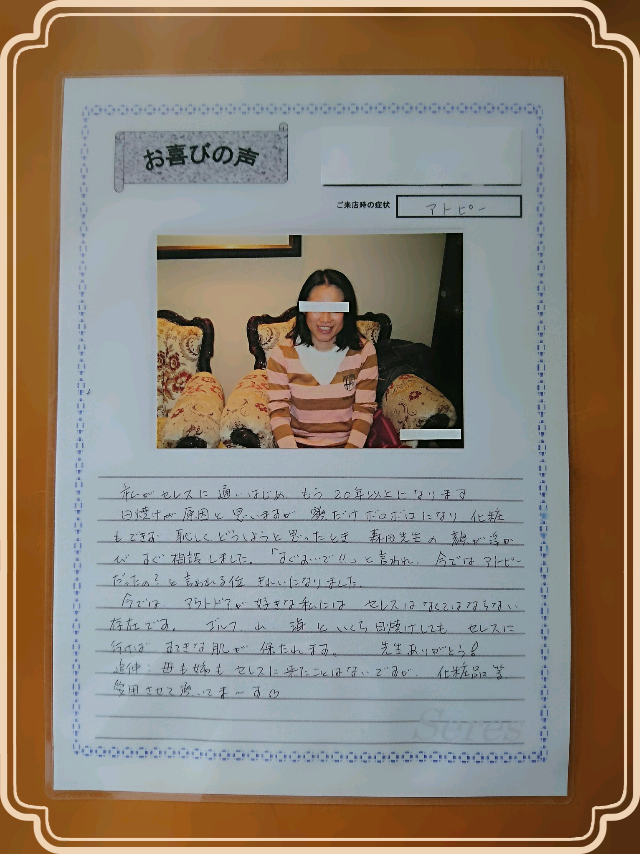 お喜びの声
ご来店時の症状
アトピー
私がセレスに通いはじめ もう20年以上になります
日焼けが原因と思いますが 顔だけボロボロになり 化粧
もできず 恥しくどうしようと思ったとき 森田先生の顔が浮か
び すぐ相談しました。「すぐおいで!!」と言われ、今ではアトピー
だったの?と言われる位 きれいになりました。
今では アウトドアが好きな私には セレスはなくてはならない
存在です。 ゴルフ 山 海といくら日焼けしても セレスに
行けば すてきな肌が保たれます。 先生ありがとう!
追伸:母も姉もセレスに来たことはないですが、化粧品等
愛用させて頂いてまーす
Seres